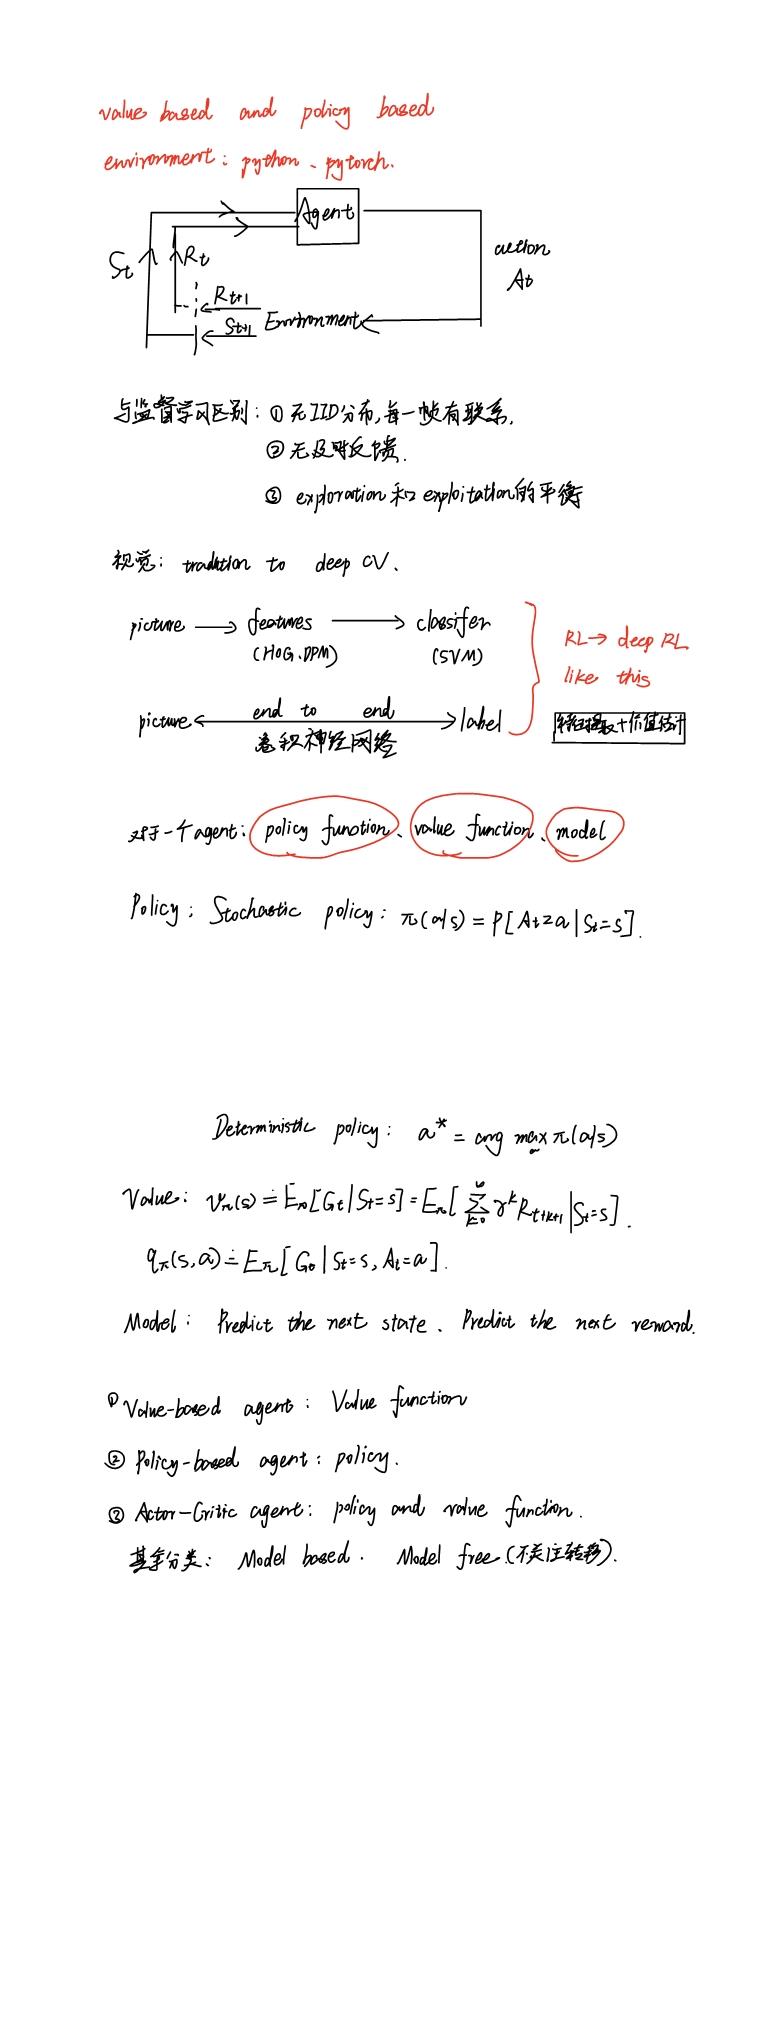 value based and policy based
environment: python、pytorch.
Agent
St
Rt
action
At
Rt+1
St+1
Environment
与监督学习区别: ① 无IID分布,每一帧有联系.
② 无及时反馈.
③ exploration 和 exploitation的平衡
视觉: tradition to deep CV.
picture → features → classifer
(HOG.DPM) (SVM)
RL→ deep RL
like this
picture ← end to end → label
卷积神经网络
特征提取+价值估计
对于一个agent: policy function、value function、model
Policy: Stochastic policy: π(a|s) = P[At=a|St=s].
Deterministic policy: a* = arg max π(a|s)
a
Value: vπ(s) ≐ Eπ[Gt|St=s] = Eπ[∑_{k=0}^{∞} γ^k R_{t+k+1}|St=s].
qπ(s,a) ≐ Eπ[Gt|St=s, At=a].
Model: Predict the next state. Predict the next reward.
① Value-based agent: Value function
② Policy-based agent: policy.
③ Actor-Critic agent: policy and value function.
基本分类: Model based. Model free.(不关注转移).